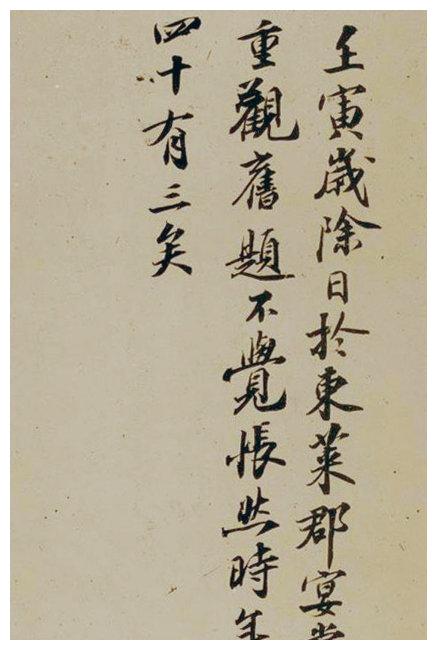 壬寅歲除日於東萊郡宴
重觀舊題不覺悵然時年
四十有三矣